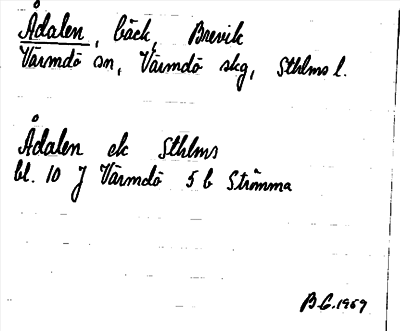 Ådalen, bäck, Brevik
Värmdö sn, Värmdö skg, Sthlms l.
Ådalen ek Sthlms
bl. 10 J Värmdö 5 b Strömma
B.G. 1969